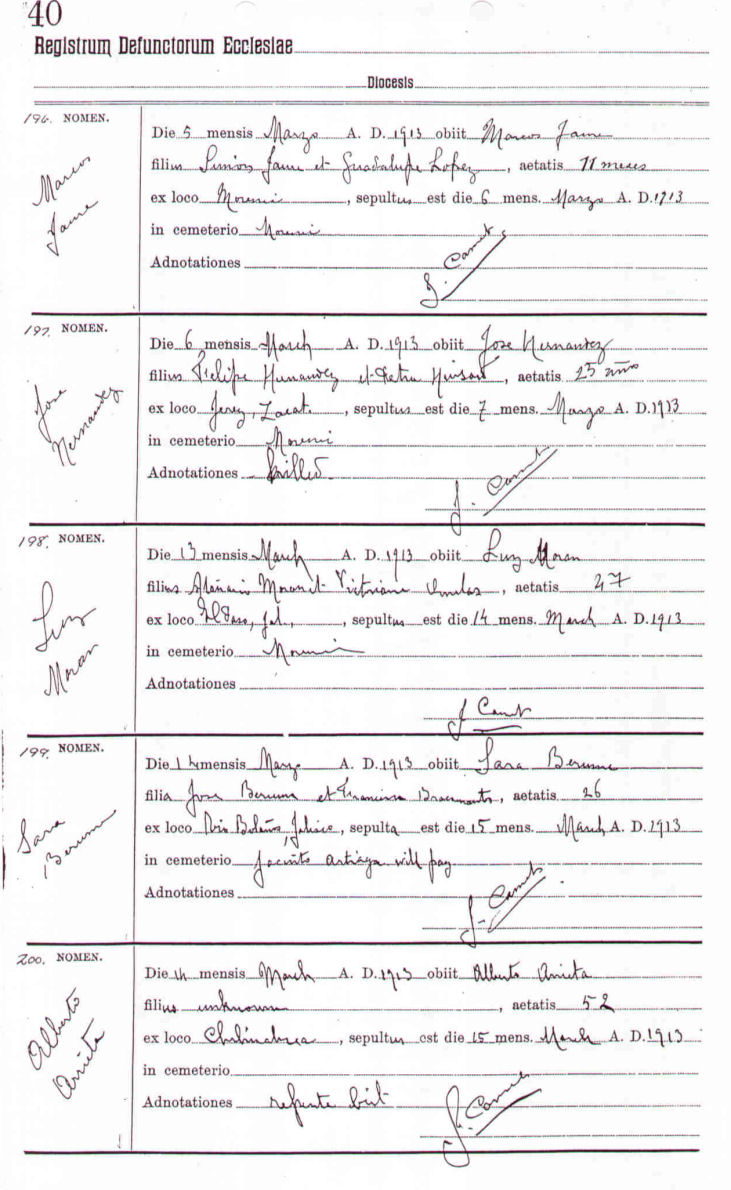 40
Registrum Defunctorum Ecclesiae
Diocesis
196. NOMEN.
Marcos
Jaure
Die 5 mensis Marzo A. D. 1913 obiit Marcos Jaure
filius Jaure et Guadalupe Lopez, aetatis 11 meses
ex loco Morenci, sepultus est die 6 mens. Marzo A. D. 1913
in cemeterio Morenci
Adnotationes
J. Camet
197. NOMEN.
Jose
Hernandez
Die 6 mensis March A. D. 1913 obiit Jose Hernandez
filius Felipe Hernandez et Petra, aetatis 25 año
ex loco Jerez, Zacat., sepultus est die 7 mens. Marzo A. D. 1913
in cemeterio Morenci
Adnotationes killed
J. Camet
198. NOMEN.
Luz
Moran
Die 13 mensis March A. D. 1913 obiit Luz Moran
filius Moran et Victoriana, aetatis 47
ex loco Jal., sepultus est die 14 mens. March A. D. 1913
in cemeterio Morenci
Adnotationes
J Camet
199. NOMEN.
Sara
Berumen
Die 14 mensis Marzo A. D. 1913 obiit Sara Berumen
filia Jose Berumen et Francisca, aetatis 26
ex loco Bolaños Jalisco, sepulta est die 15 mens. March A. D. 1913
in cemeterio Jacinto Artiaga will pay
Adnotationes
J. Camet
200. NOMEN.
Alberto
Arrieta
Die 14 mensis March A. D. 1913 obiit Alberto Arrieta
filius unknown, aetatis 52
ex loco Chihuahua, sepultus est die 15 mens. March A. D. 1913
in cemeterio
Adnotationes
J. Camet